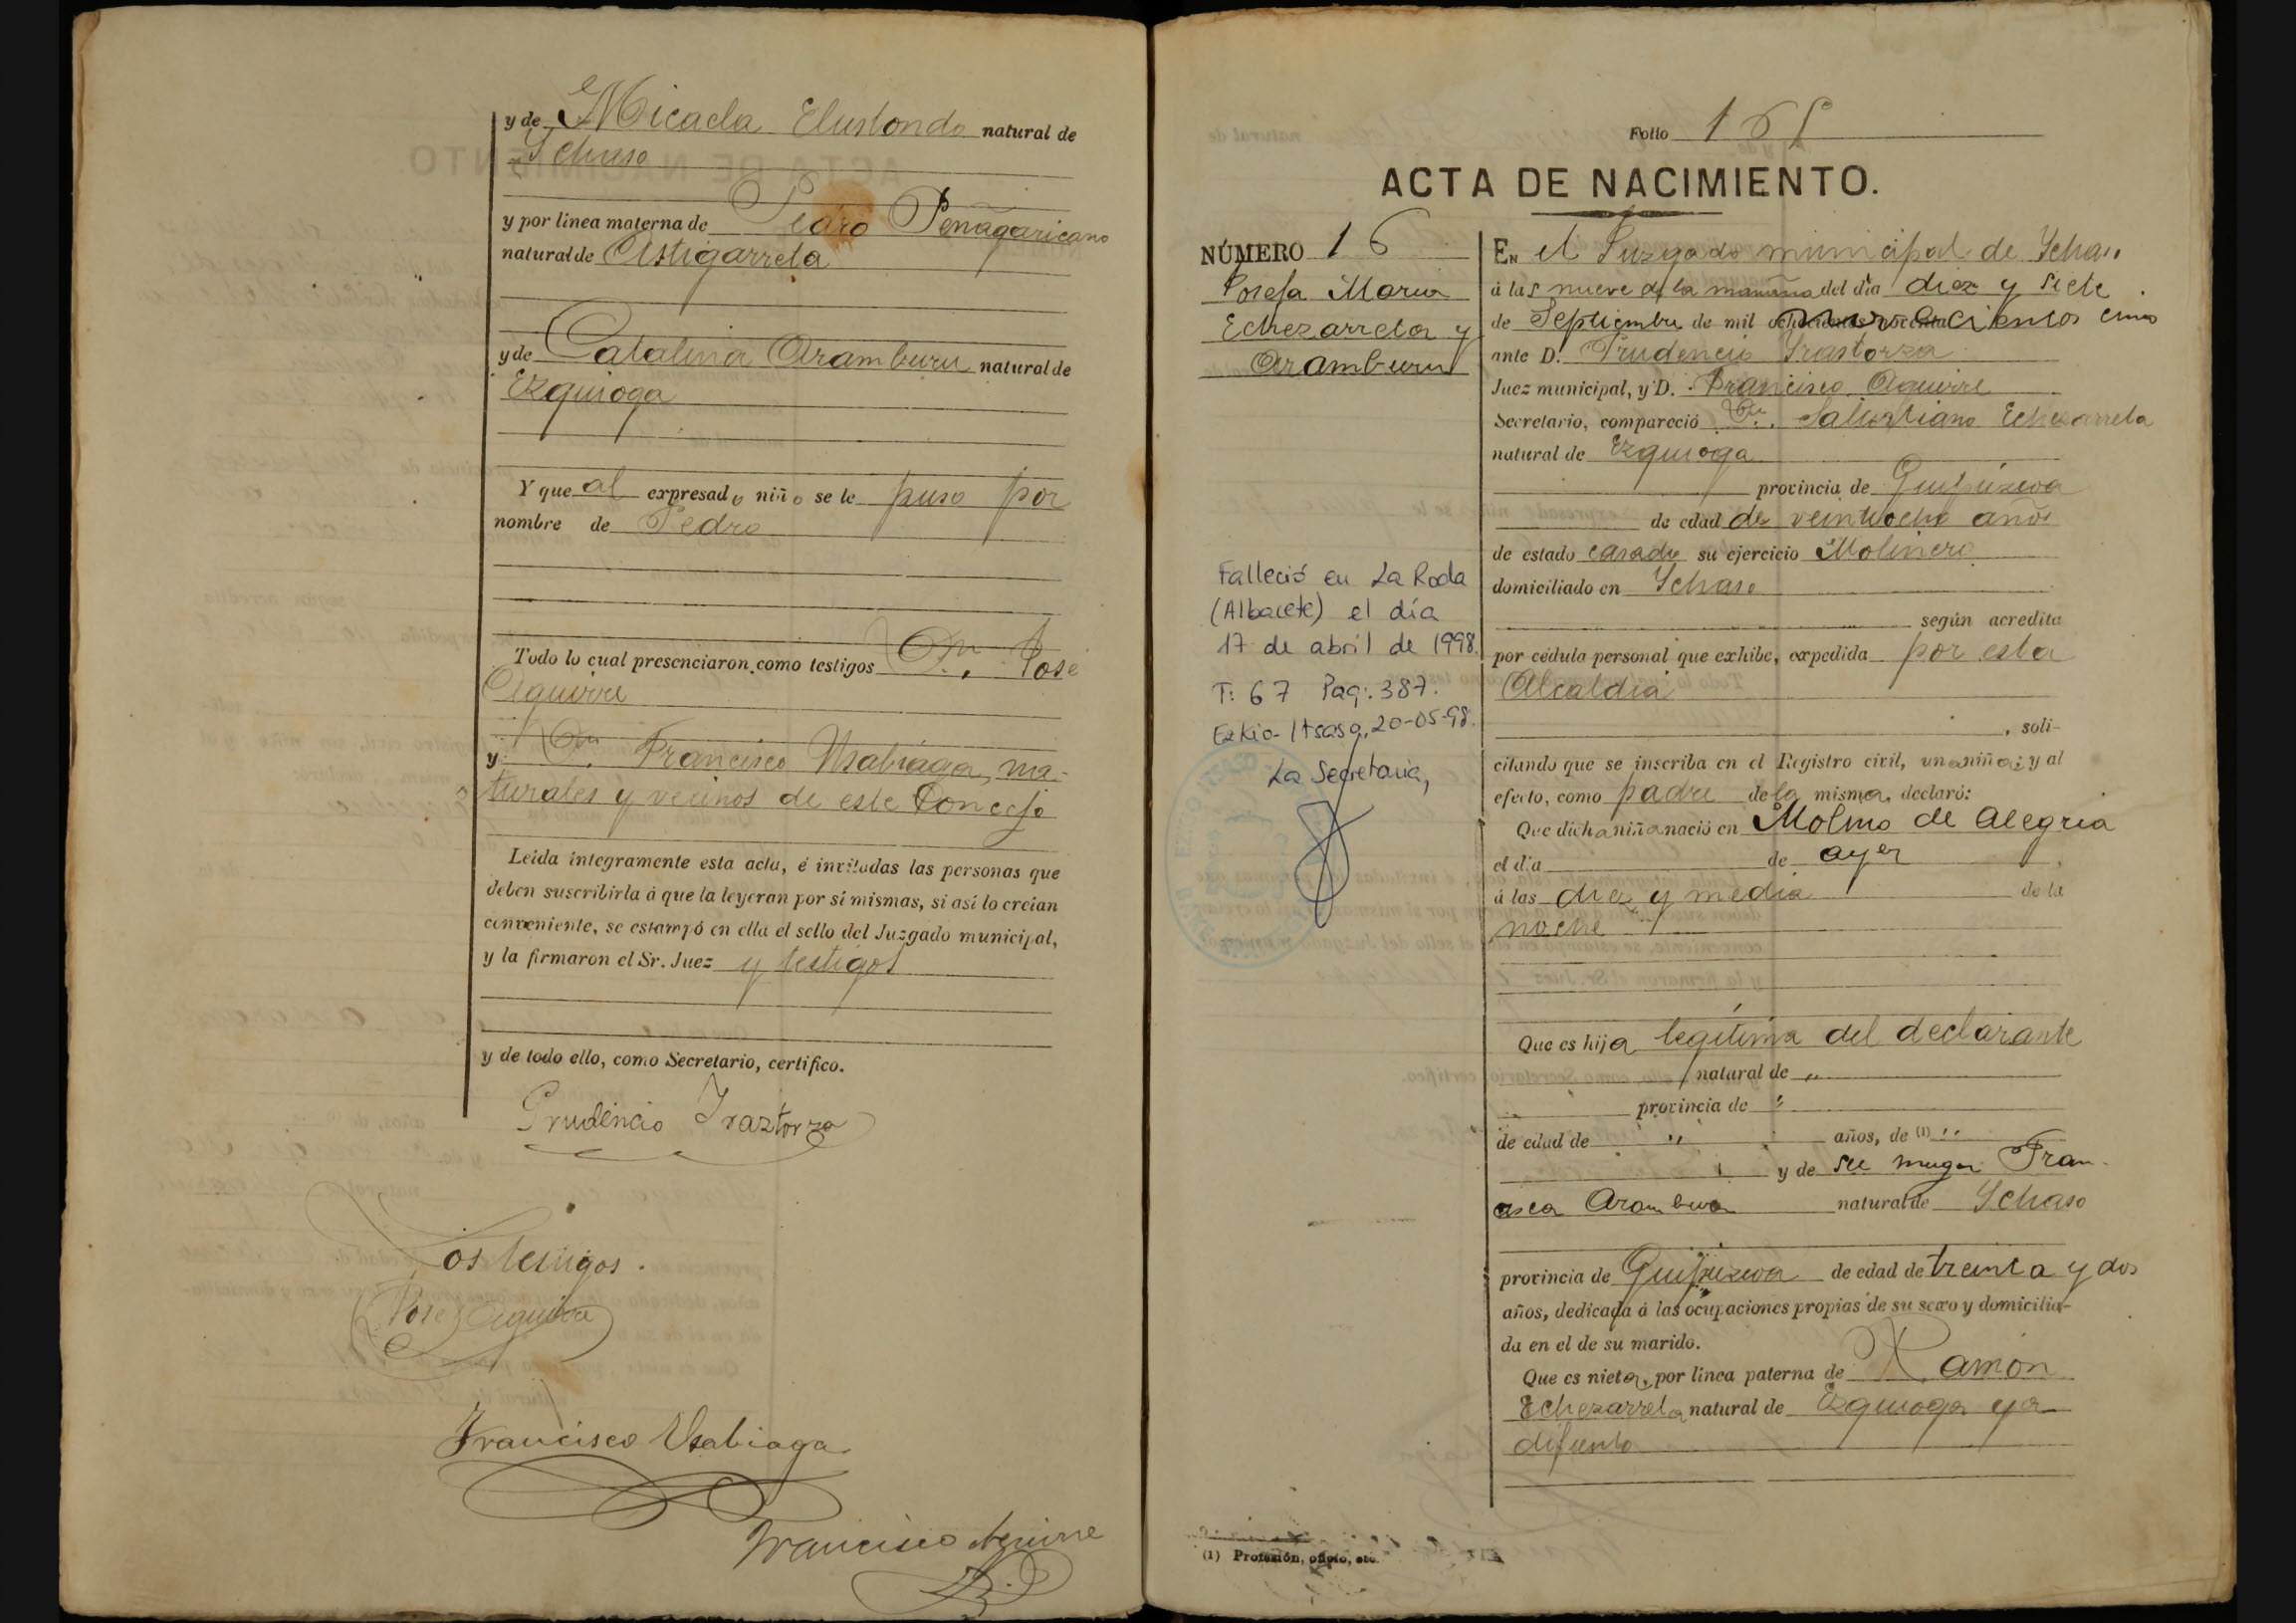 y de Micaela Elustondo natural de
Ichaso
y por línea materna de Pedro Peñagaricano
natural de Astigarreta
y de Catalina Aramburu natural de
Ezquioga
Y que al expresado niño se le puso por
nombre de Pedro
Todo lo cual presenciaron como testigos Dn. José
Aguirre
y Dn. Francisco Usabiaga, na-
turales y vecinos de este Concejo
Leida íntegramente esta acta, é invitadas las personas que
deben suscribirla á que la leyeran por sí mismas, si así lo creían
conveniente, se estampó en ella el sello del Juzgado municipal,
y la firmaron el Sr. Juez y testigos
y de todo ello, como Secretario, certifico.
Prudencio Iraztorza
Los testigos.
Jose Aguirre
Francisco Usabiaga
Francisco Aguirre
Folio 16
ACTA DE NACIMIENTO.
NÚMERO 16
Josefa Maria
Echezarreta y
Aramburu
Falleció en La Roda
(Albacete) el día
17 de abril de 1998.
T: 67 Pag: 387.
Ezkio-Itsaso, 20-05-98.
La Secretaria,
En el Juzgado municipal de Ichaso
á las nueve de la mañana del día diez y siete
de Septiembre de mil novecientos cinco
ante D. Prudencio Irastorza
Juez municipal, y D. Francisco Aguirre
Secretario, compareció Dn. Salustiano Echezarreta
natural de Ezquioga
provincia de Guipúzcoa
de edad de veintiocho años
de estado casado su ejercicio Molinero
domiciliado en Ichaso
según acredita
por cédula personal que exhibe, expedida por esta
Alcaldia
, soli-
citando que se inscriba en el Registro civil, una niña; y al
efecto, como padre de la misma, declaró:
Que dicha niña nació en Molino de Alegria
el día de ayer
á las diez y media de la
noche
Que es hija legítima del declarante
natural de "
provincia de "
de edad de " años, de (1) "
y de su muger Fran-
cisca Aramburu natural de Ichaso
provincia de Guipúzcoa de edad de treinta y dos
años, dedicada á las ocupaciones propias de su sexo y domicilia-
da en el de su marido.
Que es nieta, por línea paterna de Ramón
Echezarreta natural de Ezquioga ya
difunto
(1) Profesión, oficio, etc.